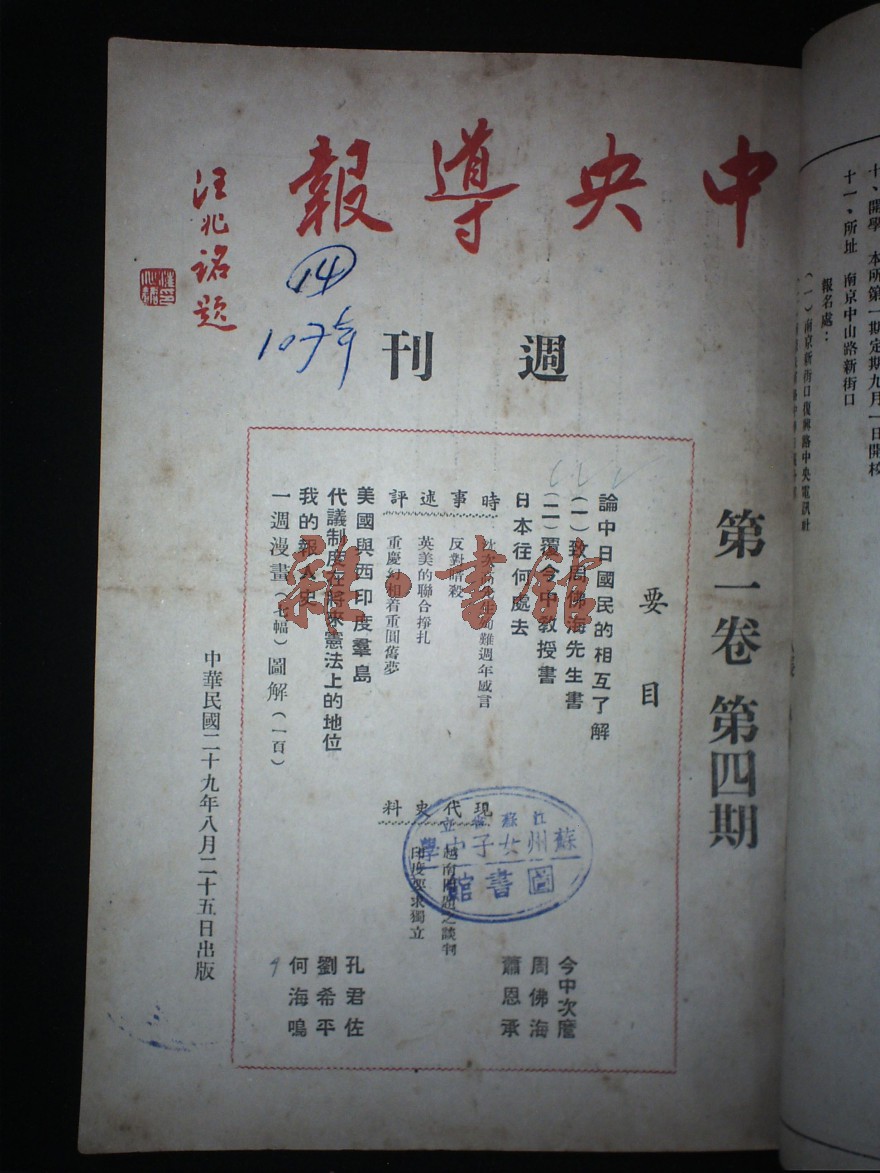 中央導報
汪兆銘題
14
10フ年
週刊
第一卷 第四期
要目
論中日國民的相互了解
(一)致周佛海先生書
今中次麿
(二)覆今中教授書
周佛海
日本往何處去
蕭恩承
時事述評
難週年感言
反對暗殺
英美的聯合掙扎
重慶幻想着重圓舊夢
現代史料
越南問題之談判
印度要求獨立
美國與西印度羣島
孔君佐
代議制度在將來憲法上的地位
劉希平
我的報人史
何海鳴
一週漫畫(七幅)圖解(一百)
中華民國二十九年八月二十五日出版
江蘇省立
蘇州女子中學
圖書館
雜·書館
十、開學 本所第一期定期九月一日開校
十一、所址 南京中山路新街口
報名處:
(一)南京新街口復興路中央電訊社